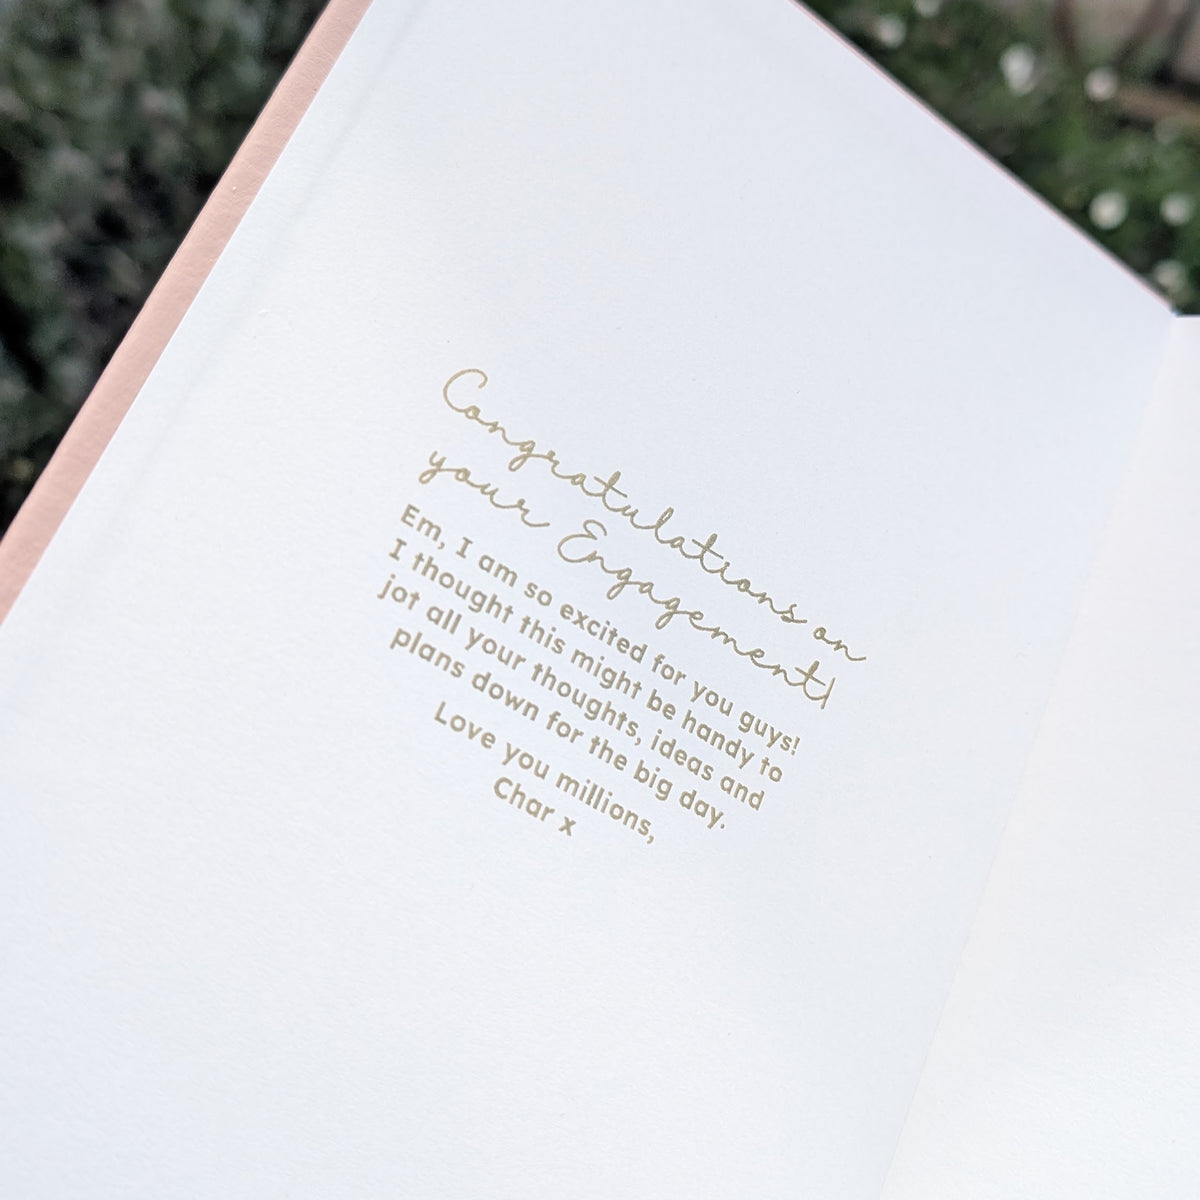 Congratulations on
your Engagement!
Em, I am so excited for you guys!
I thought this might be handy to
jot all your thoughts, ideas and
plans down for the big day.
Love you millions,
Char x